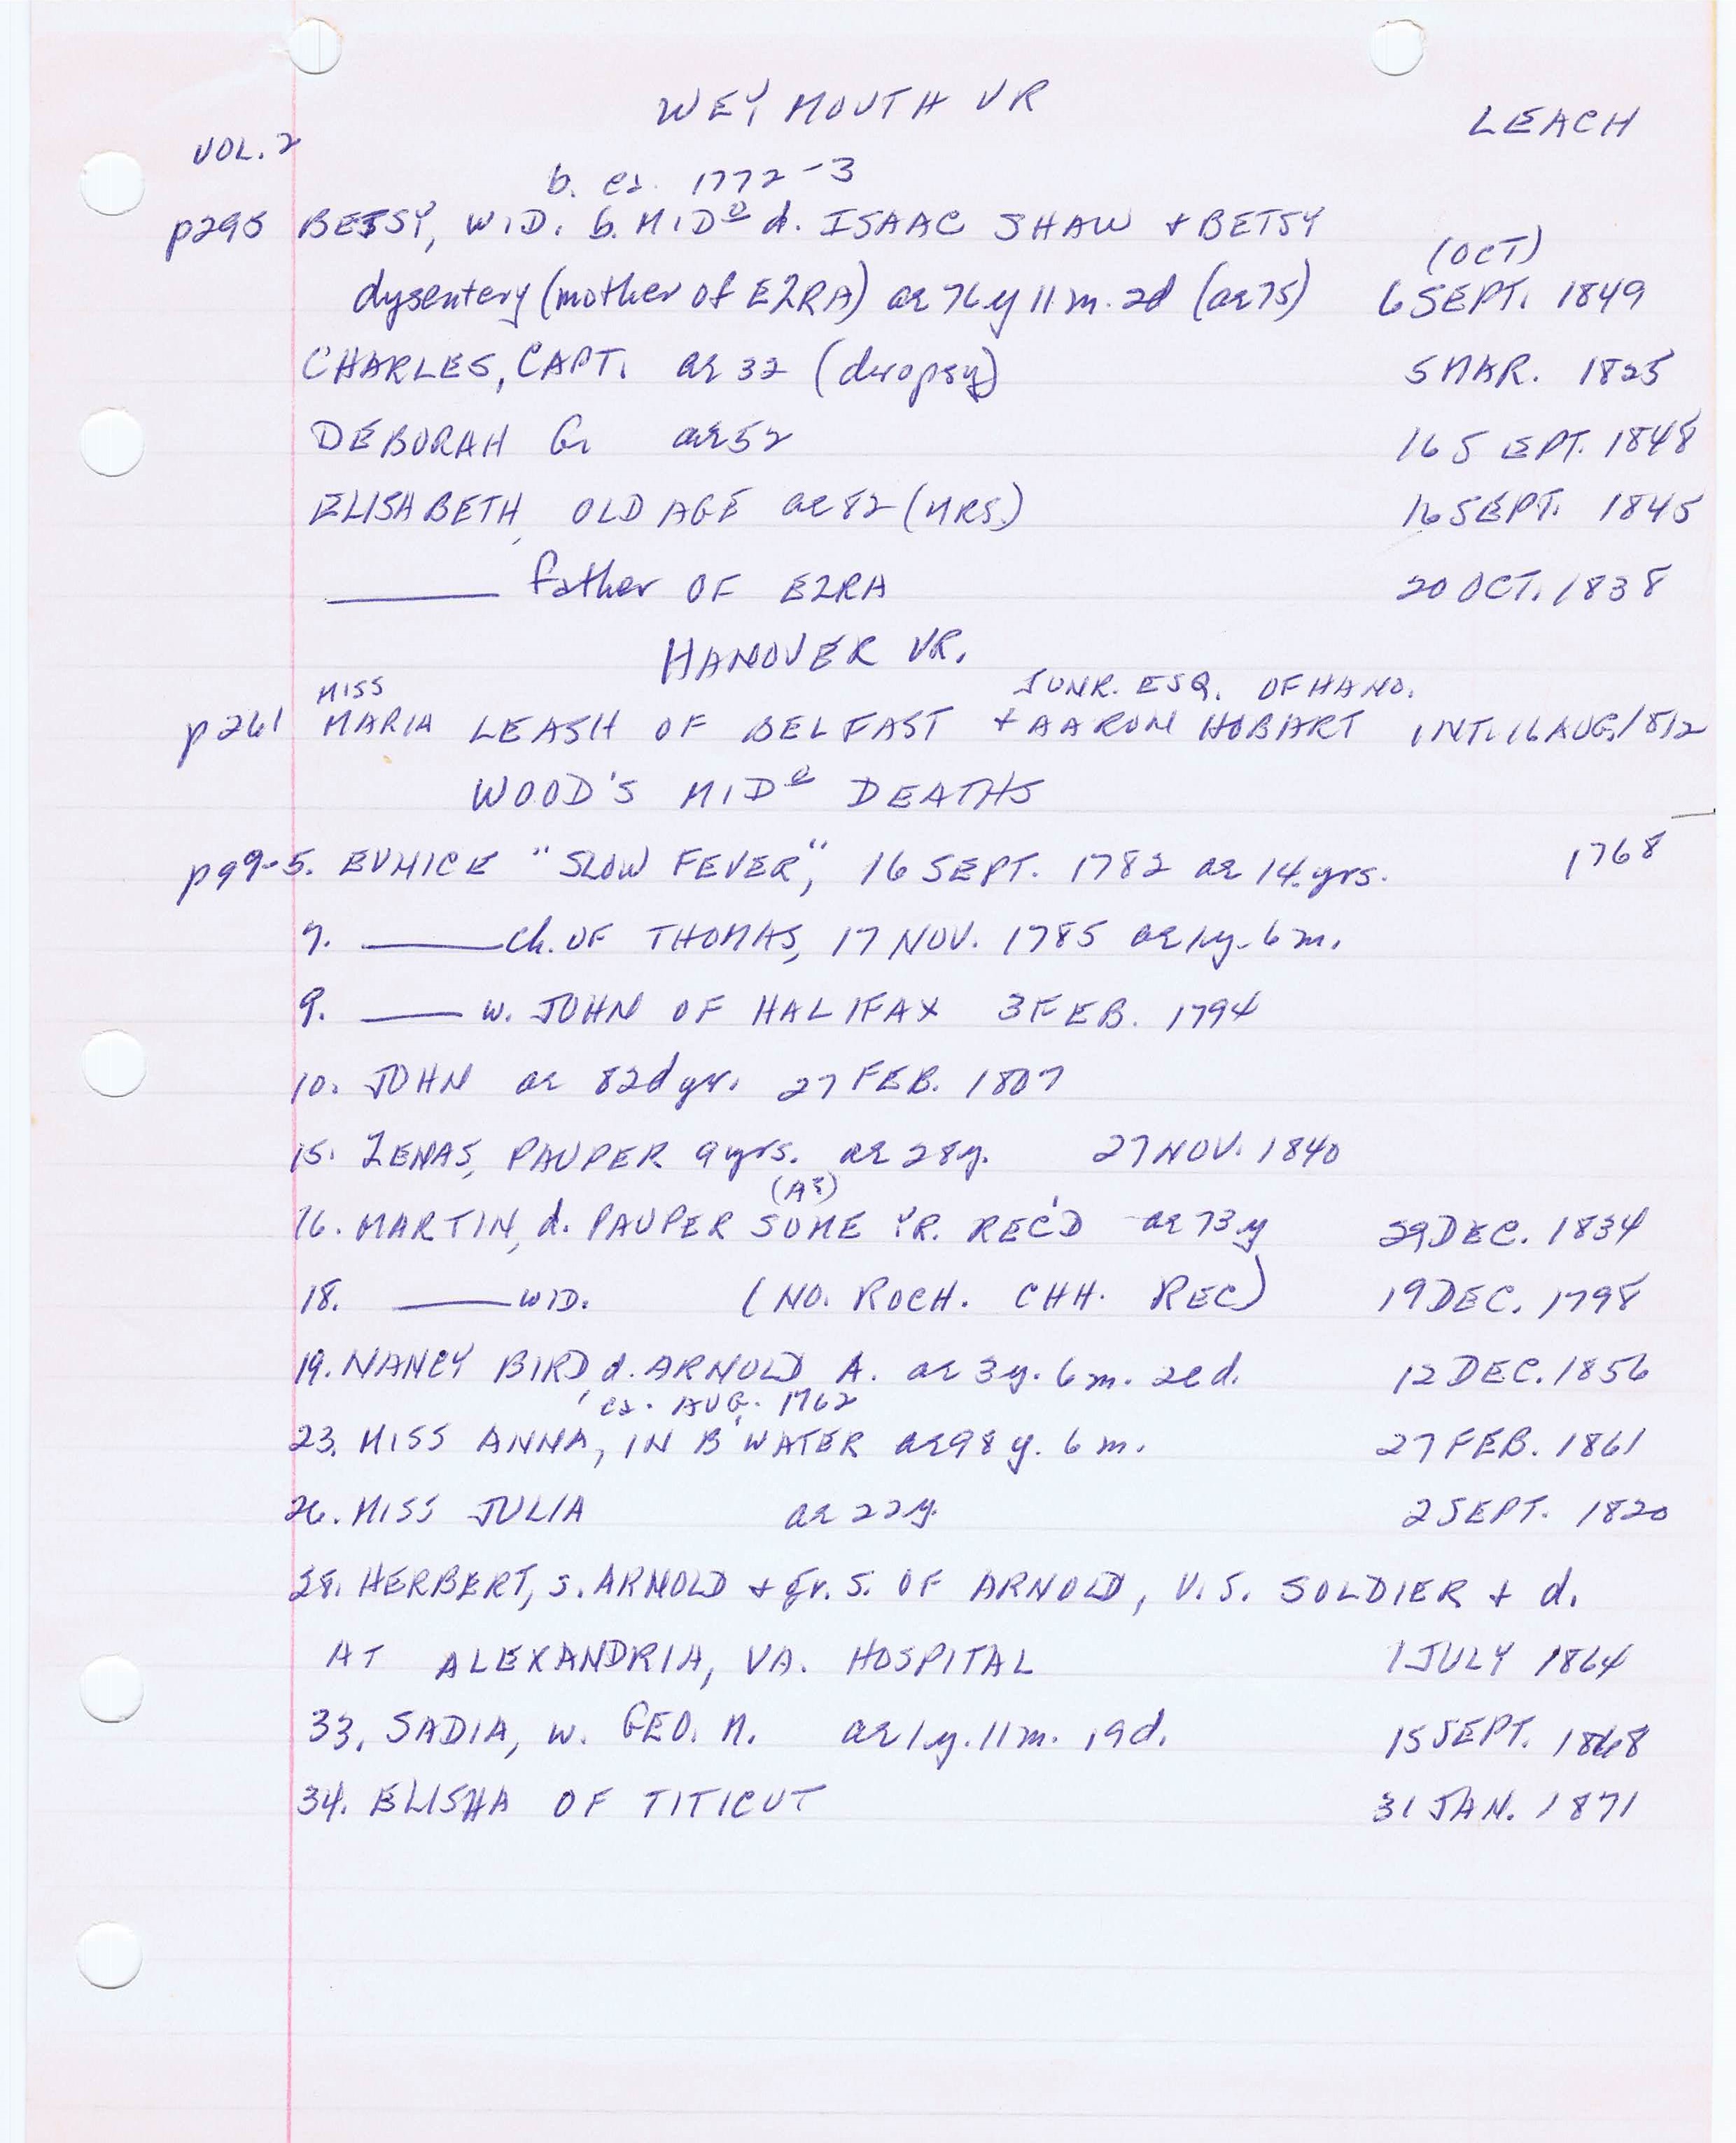 WEYMOUTH VR
LEACH
VOL. 2
b. ca. 1772-3
p295 BETSY, WID. b. MIDº d. ISAAC SHAW + BETSY
(OCT)
dysentery (mother of EZRA) ae 76y 11m. 2d (ae 75) 6 SEPT. 1849
CHARLES, CAPT. ae 32 (dropsy) 5 MAR. 1825
DEBORAH G. ae 52 16 SEPT. 1848
ELISABETH, OLD AGE ae 82 (MRS.) 16 SEPT. 1845
——— father OF EZRA 20 OCT. 1838
HANOVER VR.
MISS JUNR. ESQ. OF HANO.
p261 MARIA LEASH OF BELFAST + AARON HOBART INT. 16 AUG. 1812
WOOD'S MIDº DEATHS
p99-5. EUNICE "SLOW FEVER," 16 SEPT. 1782 ae 14. yrs. 1768
7. ——— ch. OF THOMAS, 17 NOV. 1785 ae 1y. 6m.
9. ——— w. JOHN OF HALIFAX 3 FEB. 1794
10. JOHN ae 82d yr. 27 FEB. 1807
15. ZENAS, PAUPER 9 yrs. ae 28y. 27 NOV. 1840
16. MARTIN, d. PAUPER SOME YR. REC'D ae 73y 29 DEC. 1834
18. ——— WID. (NO. ROCH. CHH. REC) 19 DEC. 1798
19. NANCY BIRD d. ARNOLD A. ae 3y. 6m. d. 12 DEC. 1856
ca. AUG. 1762
23. MISS ANNA, IN B'WATER ae 98y. 6m. 27 FEB. 1861
26. MISS JULIA ae 22y. 2 SEPT. 1820
28. HERBERT, s. ARNOLD + gr. S. OF ARNOLD, U.S. SOLDIER + d.
AT ALEXANDRIA, VA. HOSPITAL 1 JULY 1864
33. SADIA, w. GEO. M. ae 1y. 11m. 19d. 15 SEPT. 1868
34. ELISHA OF TITICUT 31 JAN. 1871